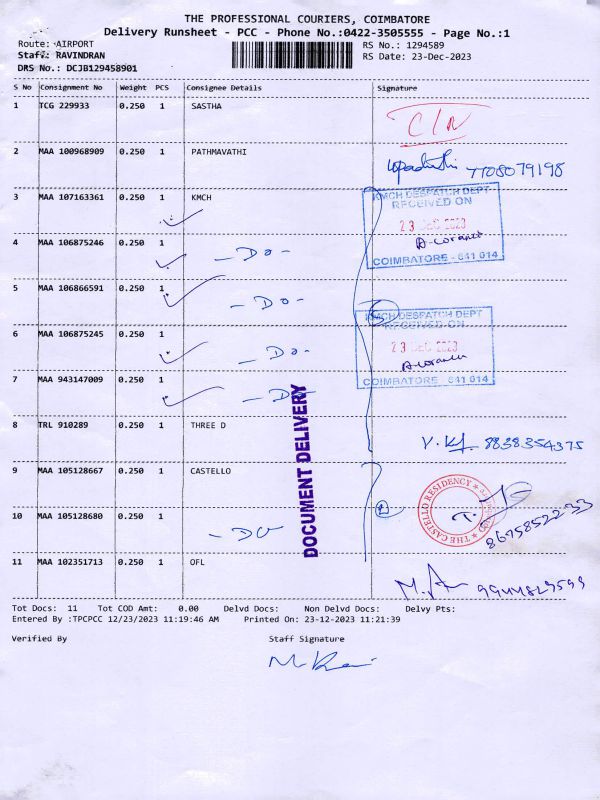 THE PROFESSIONAL COURIERS, COIMBATORE
Delivery Runsheet - PCC - Phone No.:0422-3505555 - Page No.:1
Route: AIRPORT
RS No.: 1294589
Staff: RAVINDRAN
RS Date: 23-Dec-2023
DRS No.: DCJB129458901
S No Consignment No Weight PCS Consignee Details Signature
1 TCG 229933 0.250 1 SASTHA
2 MAA 100968909 0.250 1 PATHMAVATHI 7708079198
3 MAA 107163361 0.250 1 KMCH
KMCH DESPATCH DEPT
RECEIVED ON
23 DEC 2023
COIMBATORE - 641 014
4 MAA 106875246 0.250 1 - DO -
5 MAA 106866591 0.250 1 - DO -
KMCH DESPATCH DEPT
RECEIVED ON
23 DEC 2023
COIMBATORE - 641 014
6 MAA 106875245 0.250 1 - DO -
7 MAA 943147009 0.250 1 - DO -
DOCUMENT DELIVERY
8 TRL 910289 0.250 1 THREE D 8838354375
9 MAA 105128667 0.250 1 CASTELLO
THE CASTELLO RESIDENCY
2
10 MAA 105128680 0.250 1 - DO -
11 MAA 102351713 0.250 1 OFL
Tot Docs: 11 Tot COD Amt: 0.00 Delvd Docs: Non Delvd Docs: Delvy Pts:
Entered By :TPCPCC 12/23/2023 11:19:46 AM Printed On: 23-12-2023 11:21:39
Verified By Staff Signature